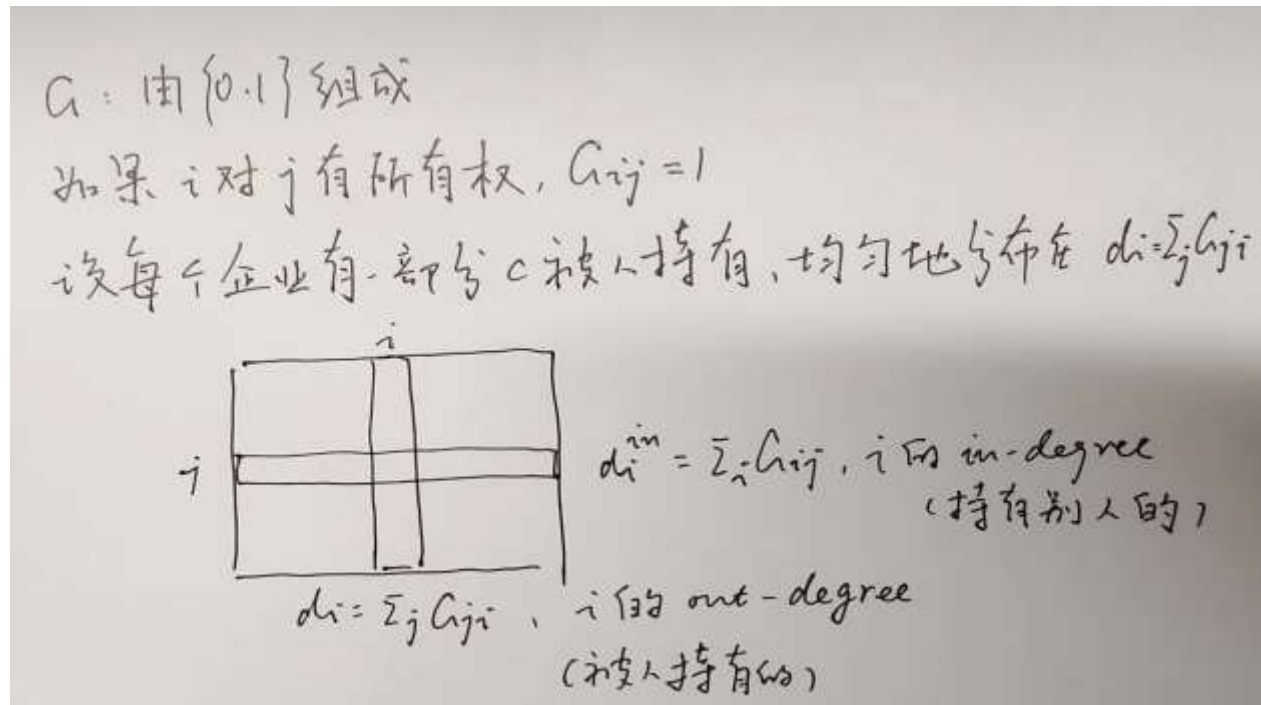 G：由{0.1}组成
如果 i 对 j 有所有权，Gij=1
设每个企业有一部分 c 被人持有、均匀地分布在 di=ΣjGji
i
j
di^in = ΣjGij，i 的 in-degree
（持有别人的）
di = ΣjGji，i 的 out-degree
（被人持有的）